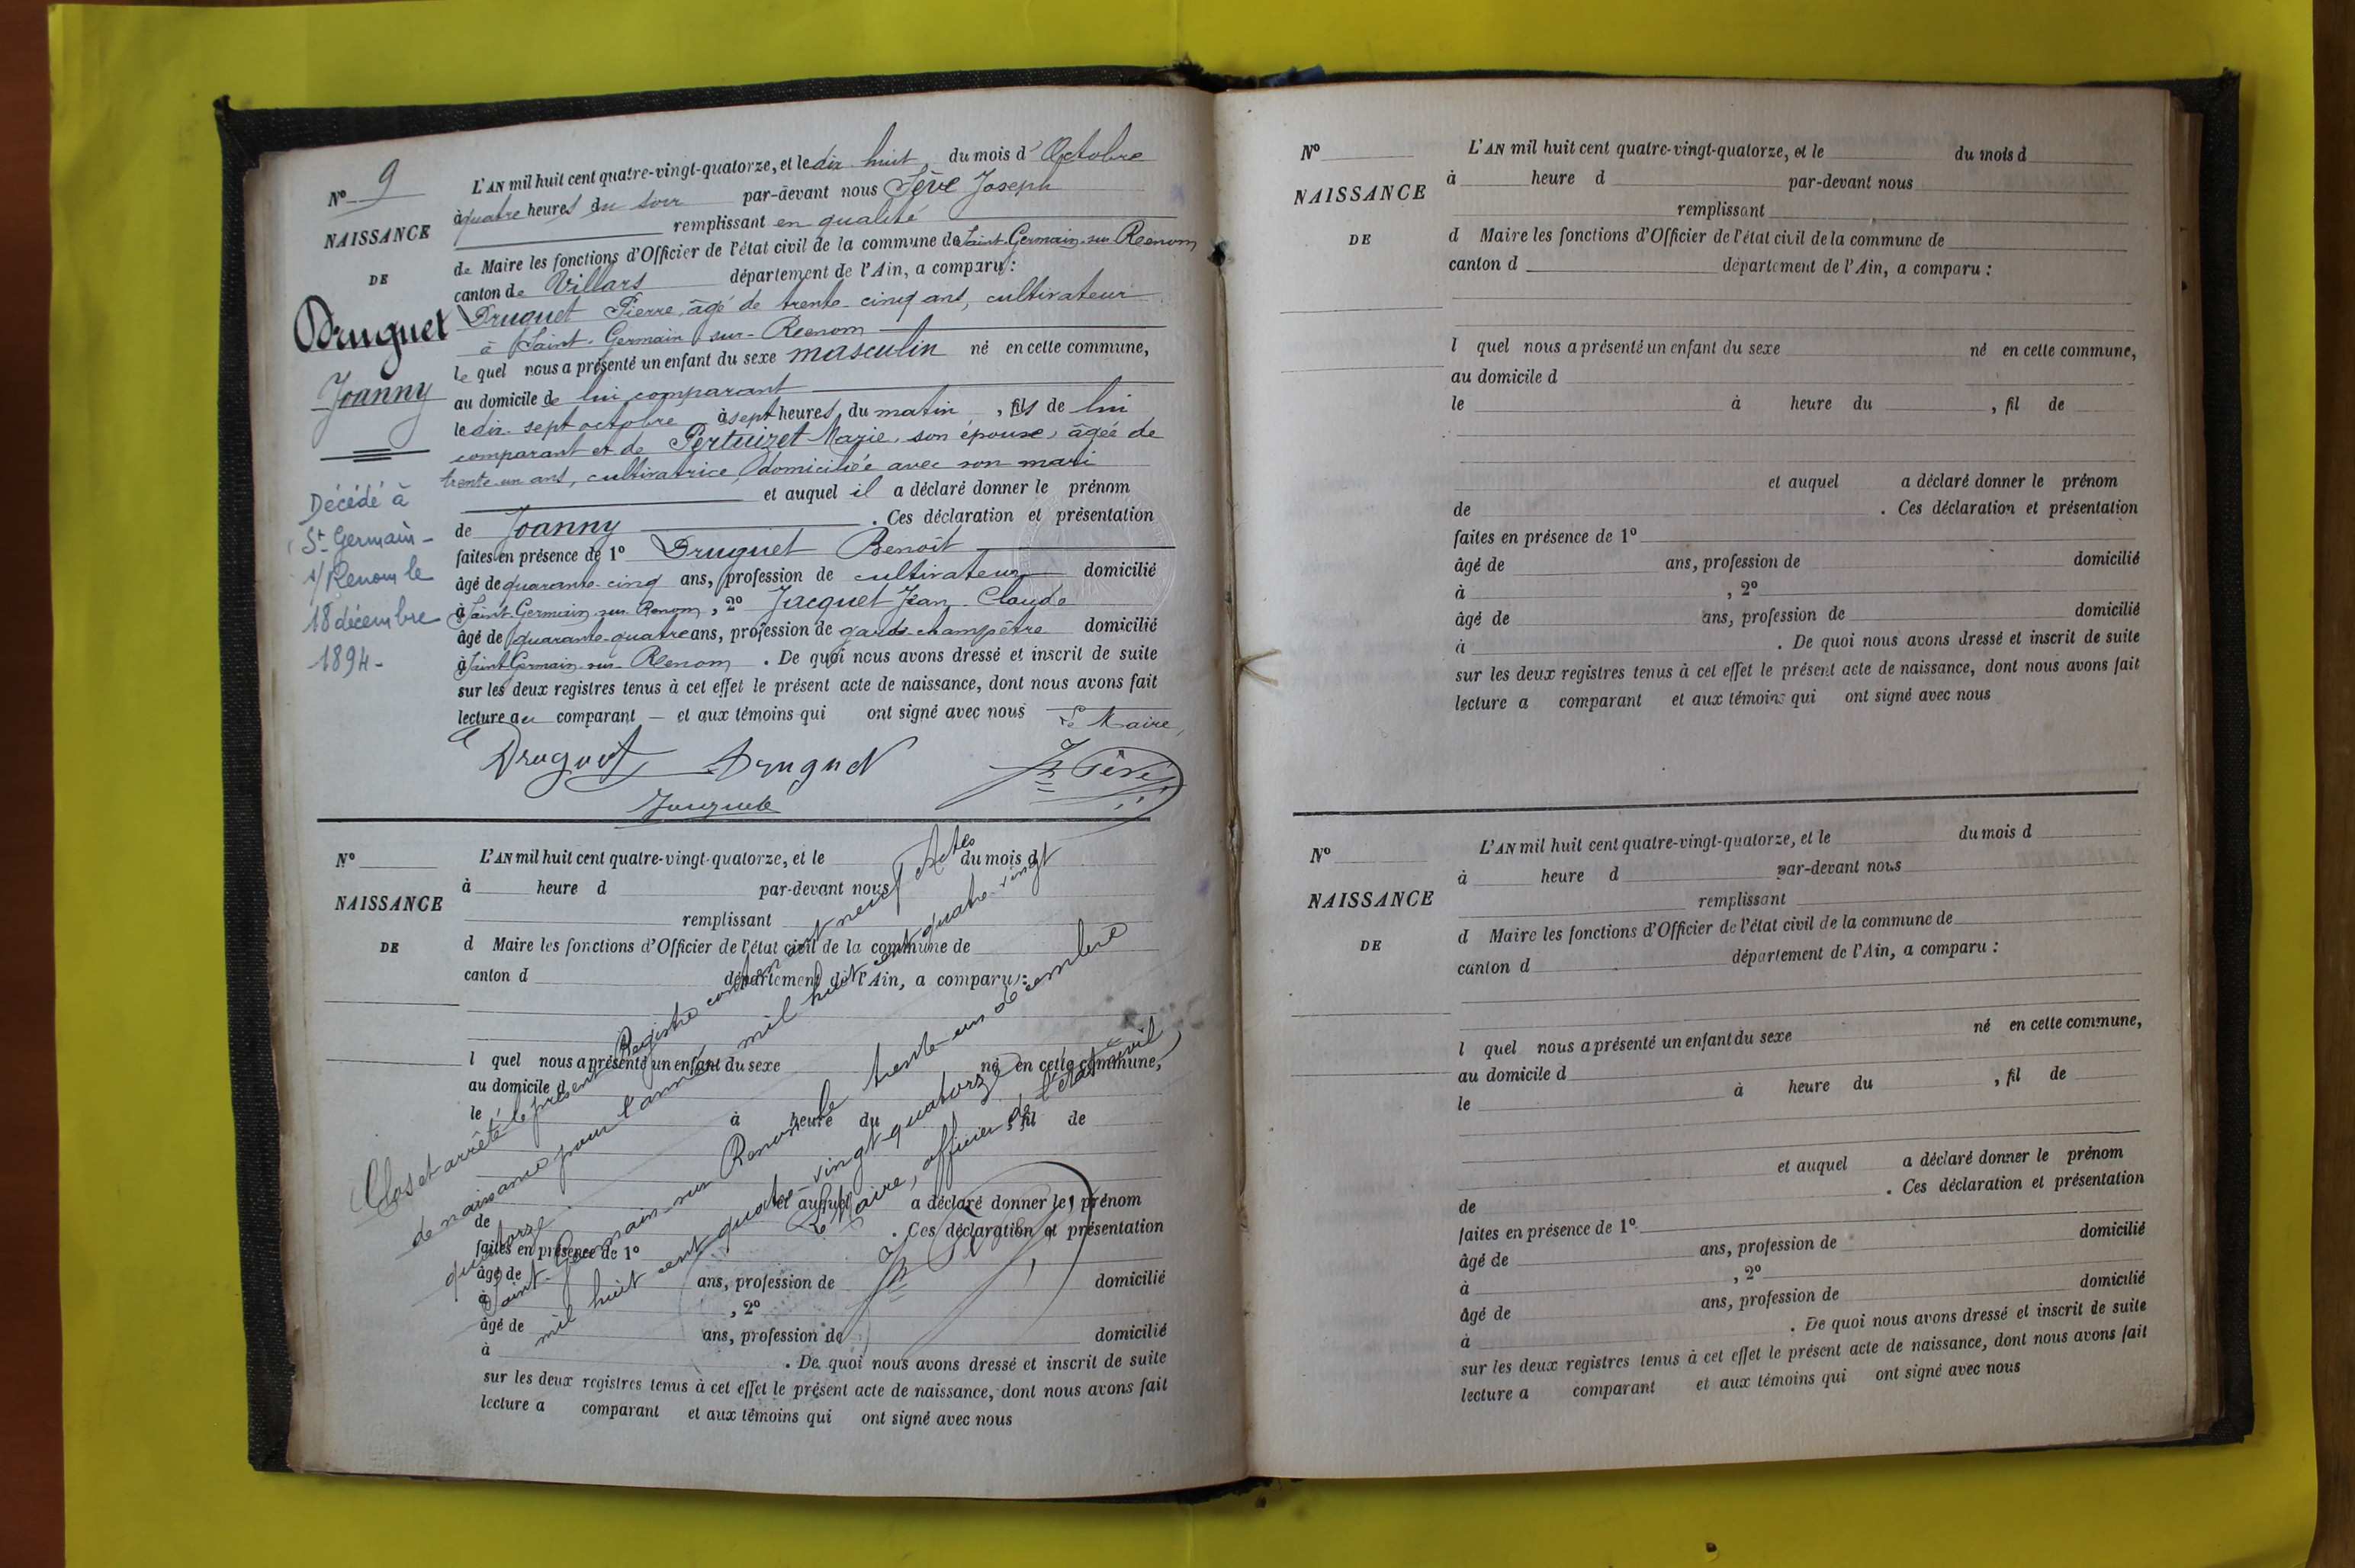 N° 9
NAISSANCE
DE
Druguet
Joanny
Décédé à
St Germain-
s/Renom le
18 décembre
1894-
L'AN mil huit cent quatre-vingt-quatorze, et le dix huit du mois d'Octobre
à quatre heures du soir par-devant nous Sève Joseph
remplissant en qualité
de Maire les fonctions d'Officier de l'état civil de la commune de Saint-Germain-sur-Renom
canton de Villars département de l'Ain, a comparu :
Druguet Pierre, âgé de trente-cinq ans, cultivateur
à Saint-Germain-sur-Renom
le quel nous a présenté un enfant du sexe masculin né en cette commune,
au domicile de lui comparant
le dix-sept octobre à sept heures du matin, fils de lui
comparant et de Pertuizet Marie, son épouse, âgée de
trente-un ans, cultivatrice, domiciliée avec son mari
et auquel il a déclaré donner le prénom
de Joanny . Ces déclaration et présentation
faites en présence de 1° Druguet Benoît
âgé de quarante-cinq ans, profession de cultivateur domicilié
à Saint-Germain-sur-Renom, 2° Jacquet Jean-Claude
âgé de quarante-quatre ans, profession de garde-champêtre domicilié
à Saint-Germain-sur-Renom . De quoi nous avons dressé et inscrit de suite
sur les deux registres tenus à cet effet le présent acte de naissance, dont nous avons fait
lecture au comparant — et aux témoins qui ont signé avec nous
Le Maire,
Druguet Druguet
Jh Sève
N°
NAISSANCE
DE
L'AN mil huit cent quatre-vingt-quatorze, et le du mois d
à heure d par-devant nous
remplissant
d Maire les fonctions d'Officier de l'état civil de la commune de
canton d département de l'Ain, a comparu :
l quel nous a présenté un enfant du sexe né en cette commune,
au domicile d
le à heure du , fil de
et auquel a déclaré donner le prénom
de . Ces déclaration et présentation
faites en présence de 1°
âgé de ans, profession de domicilié
à , 2°
âgé de ans, profession de domicilié
à . De quoi nous avons dressé et inscrit de suite
sur les deux registres tenus à cet effet le présent acte de naissance, dont nous avons fait
lecture a comparant et aux témoins qui ont signé avec nous
Clos et arrêté le présent Registre contenant neuf Actes
de naissance pour l'année mil huit cent quatre-vingt
quatorze.
Saint-Germain-sur Renom le trente-un décembre
mil huit cent quatre-vingt-quatorze
Le Maire, officier de l'état civil
Jh Sève
N°
NAISSANCE
DE
L'AN mil huit cent quatre-vingt-quatorze, et le du mois d
à heure d par-devant nous
remplissant
d Maire les fonctions d'Officier de l'état civil de la commune de
canton d département de l'Ain, a comparu :
l quel nous a présenté un enfant du sexe né en cette commune,
au domicile d
le à heure du , fil de
et auquel a déclaré donner le prénom
de . Ces déclaration et présentation
faites en présence de 1°
âgé de ans, profession de domicilié
à , 2°
âgé de ans, profession de domicilié
à . De quoi nous avons dressé et inscrit de suite
sur les deux registres tenus à cet effet le présent acte de naissance, dont nous avons fait
lecture a comparant et aux témoins qui ont signé avec nous
N°
NAISSANCE
DE
L'AN mil huit cent quatre-vingt-quatorze, et le du mois d
à heure d par-devant nous
remplissant
d Maire les fonctions d'Officier de l'état civil de la commune de
canton d département de l'Ain, a comparu :
l quel nous a présenté un enfant du sexe né en cette commune,
au domicile d
le à heure du , fil de
et auquel a déclaré donner le prénom
de . Ces déclaration et présentation
faites en présence de 1°
âgé de ans, profession de domicilié
à , 2°
âgé de ans, profession de domicilié
à . De quoi nous avons dressé et inscrit de suite
sur les deux registres tenus à cet effet le présent acte de naissance, dont nous avons fait
lecture a comparant et aux témoins qui ont signé avec nous